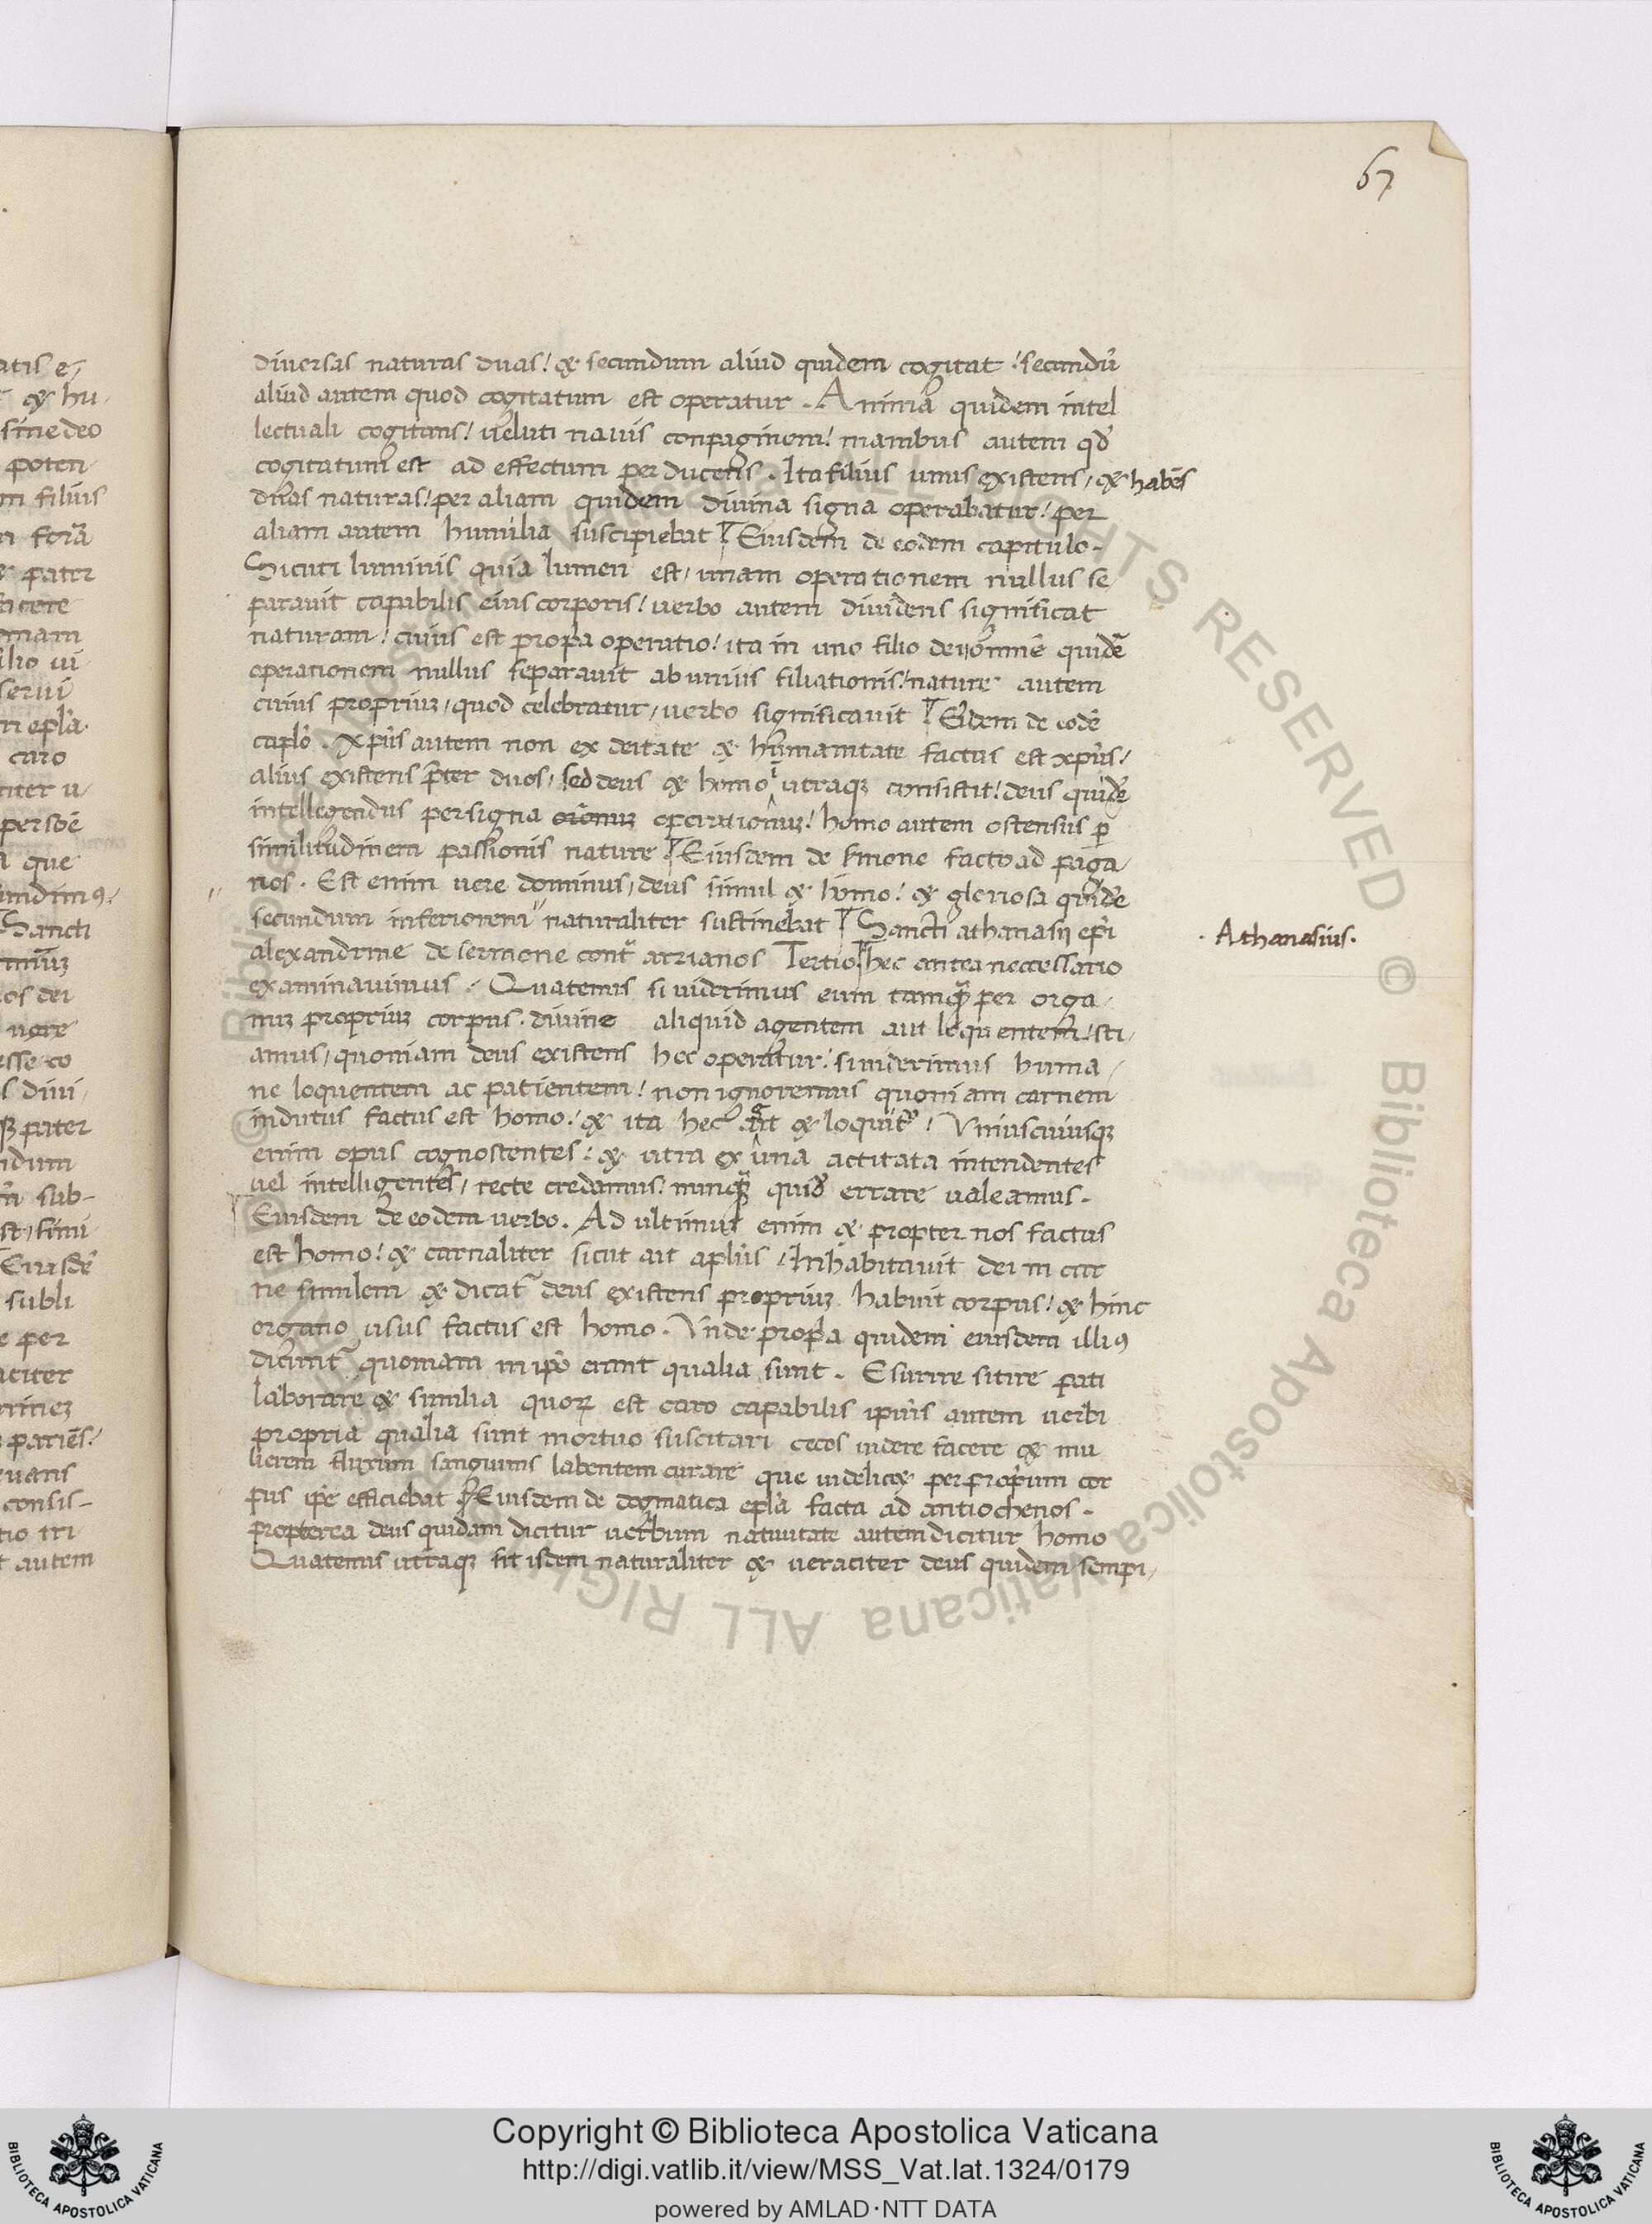 67
diversas naturas duas! & secundum aliud quidem cogitat! secundū
aliud autem quod cogitatum est operatur. Anima quidem intel
lectuali cogitans! veluti navis conpaginem! manibus autem qđ
cogitatum est ad effectum per ducens. Ita filius unus existens, & habēs
duas naturas! per aliam quidem divina signa operabatur! per
aliam autem humilia suscipiebat Eiusdem de eodem capitulo.
Sicuti luminis quia lumen est, unam operationem nullus se
paravit capabilis eius corporis! verbo autem dividens significat
naturam! cuius est propa operatio! ita in uno filio quidē
operationem nullus separavit ab unius filiationis! nature autem
cuius proprium, quod celebratur, verbo significavit Eidem de eodē
caplo. Xpus autem non ex deitate & humanitate factus est xpus!
alius existens pter duos, sed deus & homo ī utraque consistit! deus quidē
intellegendus per signa operationum! homo autem ostensus p
similitudinem passionis nature Eiusdem de smone facto ad paga
nos. Est enim vere dominus, deus simul & homo! & gloriosa quidē
secundum inferiorem naturaliter sustinebat Sancti athanasij epi
· Athanasius ·
alexandrine de sermone cont arrianos Tertio hec antea neccessario
examinavimus. Quatenus si viderimus eum tamq per orga
num proprium corpus. divine aliquid agentem aut loquentem! sci
amus, quoniam deus existens hec operatur! si viderimus huma
ne loquentem ac patientem! non ignoremus quoniam carnem
indutus factus est homo! & ita hec ait & loquit! Uniuscuiusque
enim opus cognoscentes! & utra ex una actitata intendentes
vel intelligentes, recte credamus! nunq quid errare valeamus.
Eiusdem de eodem verbo. Ad ultimum enim & propter nos factus
est homo! & carnaliter sicut ait aplus, Inhabitavit dei in car
ne similem & dicat deus existens proprium habuit corpus! & hinc
organo usus factus est homo. Unde propa quidem eiusdem illi9
dicunt quoniam in ipo erant qualia sunt. Esurire sitire pati
laborare & similia quorum est caro capabilis ipius autem verbi
propria qualia sunt mortuo suscitari cecos videre facere & mu
lierem fluxum sanguinis labentem curare que videlicet per proprium cor
pus ipe efficiebat Eiusdem de dogmatica epla facta ad antiochenos.
propterea deus quidam dicitur verbum nativitate autem dicitur homo
Quatenus utraque sit isdem naturaliter & veraciter deus quidem sempi
Copyright © Biblioteca Apostolica Vaticana
http://digi.vatlib.it/view/MSS_Vat.lat.1324/0179
powered by AMLAD·NTT DATA
BIBLIOTECA APOSTOLICA VATICANA
BIBLIOTECA APOSTOLICA VATICANA